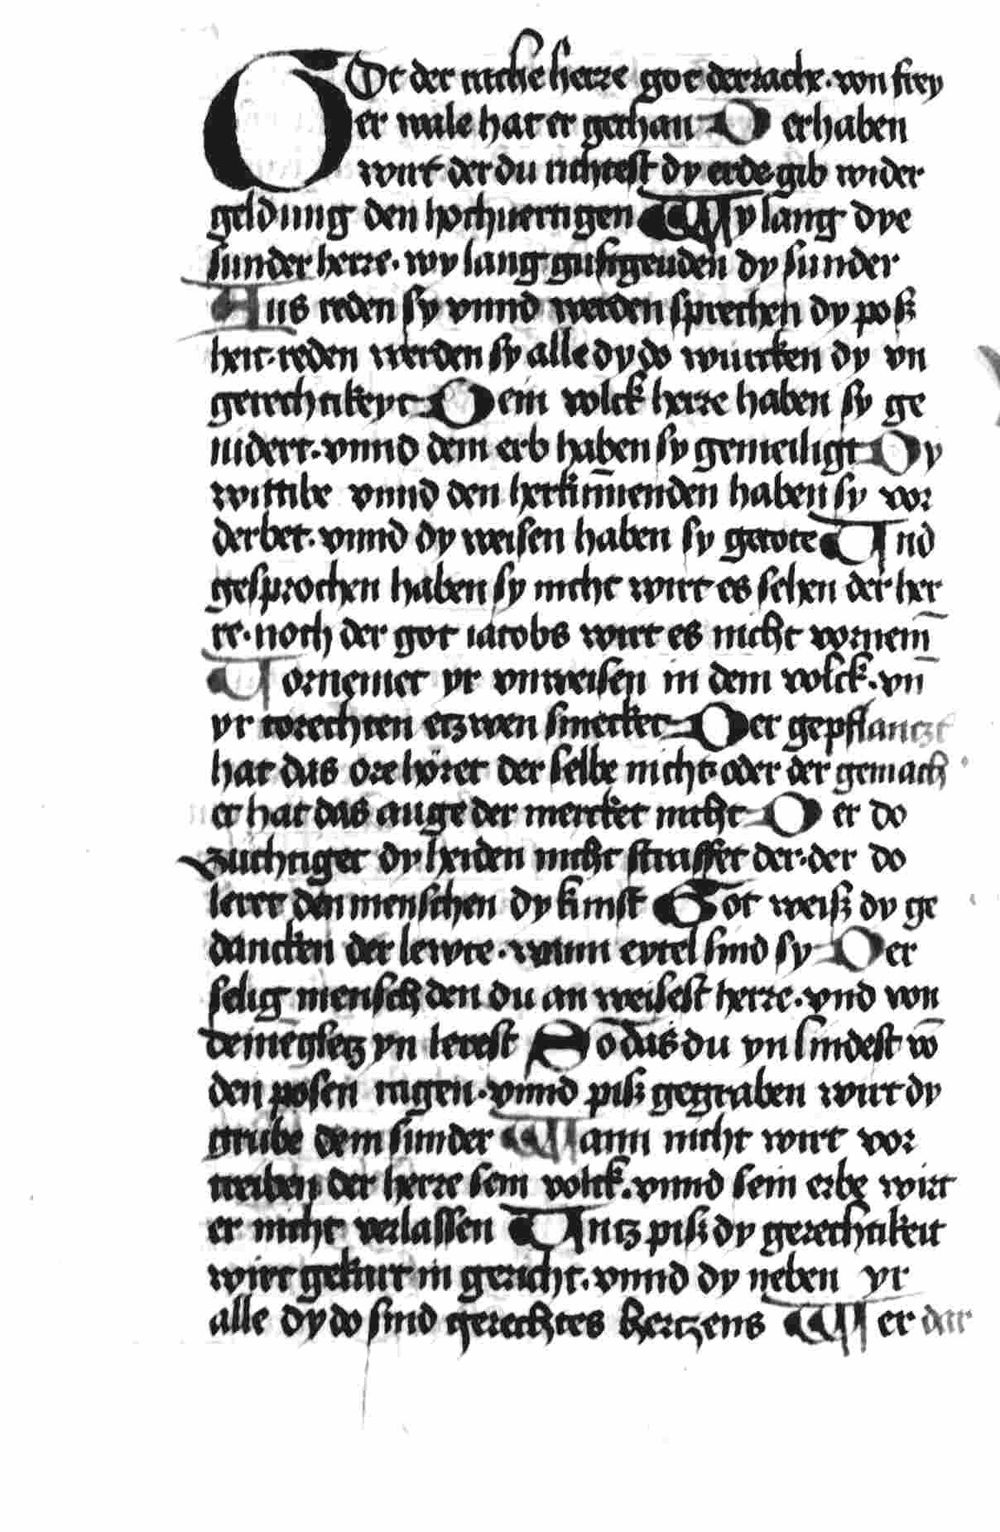 GOt der rache herre got der rache. von frey
er wale hat er gethan D erhaben
wirt der du richtest dy erde gib wider
geldung den hochuertigen Wy lang dye
sunder herre. wy lang gustgeuden dy sunder
Aus reden sy vnnd werden sprechen dy posz
heit. reden werden sy alle dy do wurcken dy vn
gerechtikeyt Dein volck herre haben sy ge
nidert. vnnd dein erb haben sy gemeiligt Dy
wittibe vnnd den herkūmenden haben sy vor
derbet. vnnd dy weisen haben sy getote Vnd
gesprochen haben sy nicht wirt es sehen der her
re. noch der got iacobs wirt es nicht vornem̄
Vornemet yr vnweisen in dem volck. vn̄
yr torechten etzwen smecket Der gepflantzt
hat das ore höret der selbe nicht oder der gemach
et hat das auge der mercket nicht D er do
zuchtiget dy heiden nicht straffet der. der do
leret den menschen dy kunst Got weisz dy ge
dancken der lewte. wann eytel sind sy Der
selig mensch den du an weisest herre. vnd von
deinē gsetz yn lerest So das du yn lindest vō
den posen tagen. vnnd pisz gegraben wirt dy
grube dem sunder Wann nicht wirt vor
treiben der herre sein volck. vnnd sein erbe wirt
er nicht verlassen Vntz pisz dy gerechtikeit
wirt gekart in gericht. vnnd dy neben yr
alle dy do sind gerechtes hertzens Wer dar